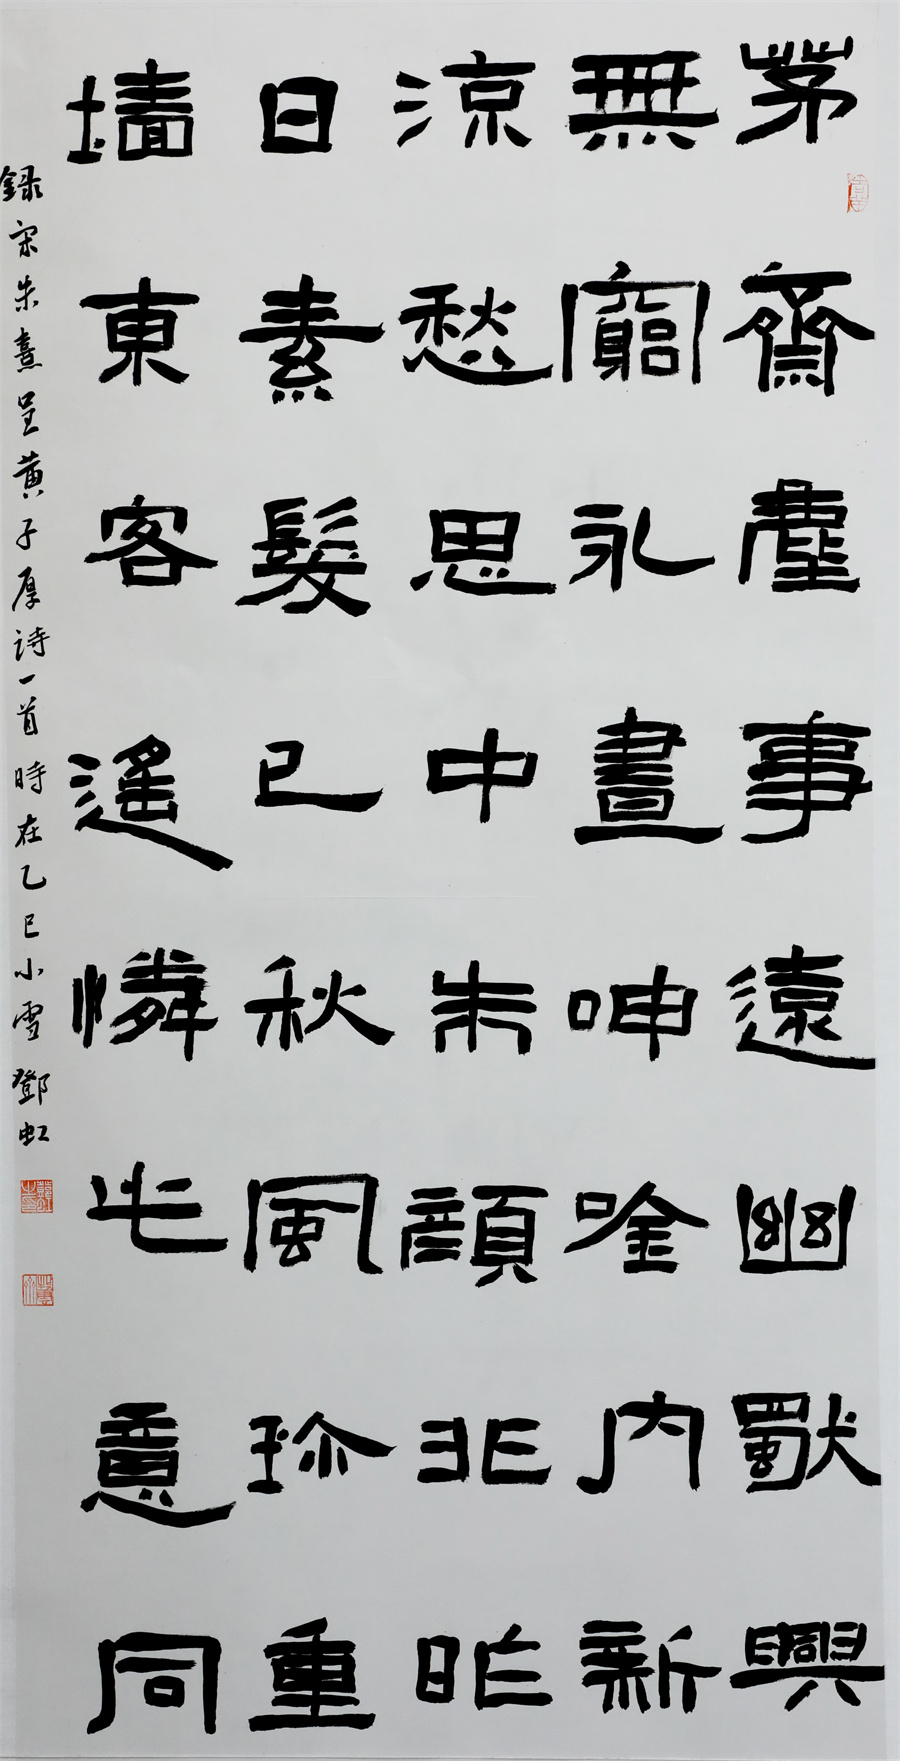 茅齋塵事遠幽獨興
無窮永晝呻唫内新
涼愁思中朱顔非昨
日素髮已秋風珍重
墻東客遙憐此意同
録宋朱熹呈黄子厚诗一首時在乙巳小雪鄧虹